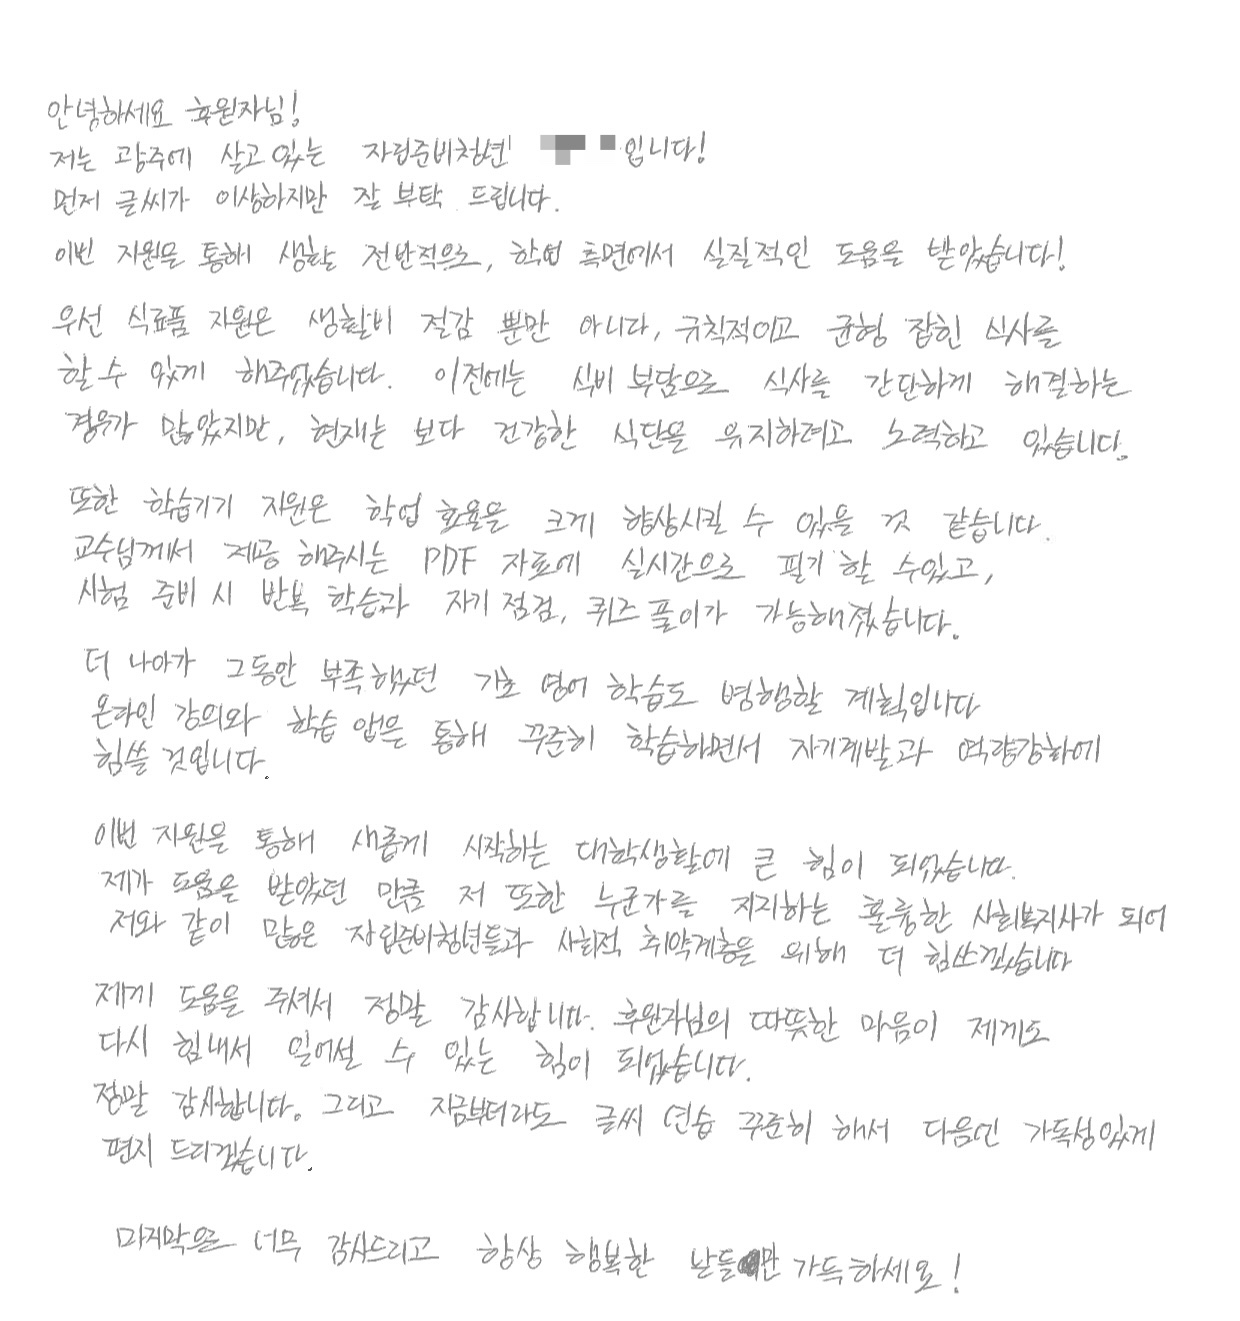 안녕하세요 후원자님!
저는 광주에 살고 있는 자립준비청년 입니다!
먼저 글씨가 이상하지만 잘 부탁 드립니다.
이번 지원을 통해 생활 전반적으로, 학업 측면에서 실질적인 도움을 받았습니다!
우선 식료품 지원은 생활비 절감 뿐만 아니다, 규칙적이고 균형 잡힌 식사를
할 수 있게 해주었습니다. 이전에는 식비 부담으로 식사를 간단하게 해결하는
경우가 많았지만, 현재는 보다 건강한 식단을 유지하려고 노력하고 있습니다.
또한 학습기기 지원은 학업 효율을 크게 향상시킬 수 있을 것 같습니다.
교수님께서 제공 해주시는 PDF 자료에 실시간으로 필기 할 수있고,
시험 준비 시 반복 학습과 자기 점검, 퀴즈 풀이가 가능해졌습니다.
더 나아가 그동안 부족했던 기초 영어 학습도 병행할 계획입니다
온라인 강의와 학습 앱을 통해 꾸준히 학습하면서 자기계발과 역량강화에
힘쓸 것입니다.
이번 지원을 통해 새롭게 시작하는 대학생활에 큰 힘이 되었습니다.
제가 도움을 받았던 만큼 저 또한 누군가를 지지하는 훌륭한 사회복지사가 되어
저와 같이 많은 자립준비청년들과 사회적 취약계층을 위해 더 힘쓰겠습니다
제게 도움을 주셔서 정말 감사합니다. 후원자님의 따뜻한 마음이 제게도
다시 힘내서 일어설 수 있는 힘이 되었습니다.
정말 감사합니다. 그리고 지금부터라도 글씨 연습 꾸준히 해서 다음엔 가독성있게
편지 드리겠습니다.
마지막으로 너무 감사드리고 항상 행복한 날들만 가득하세요!